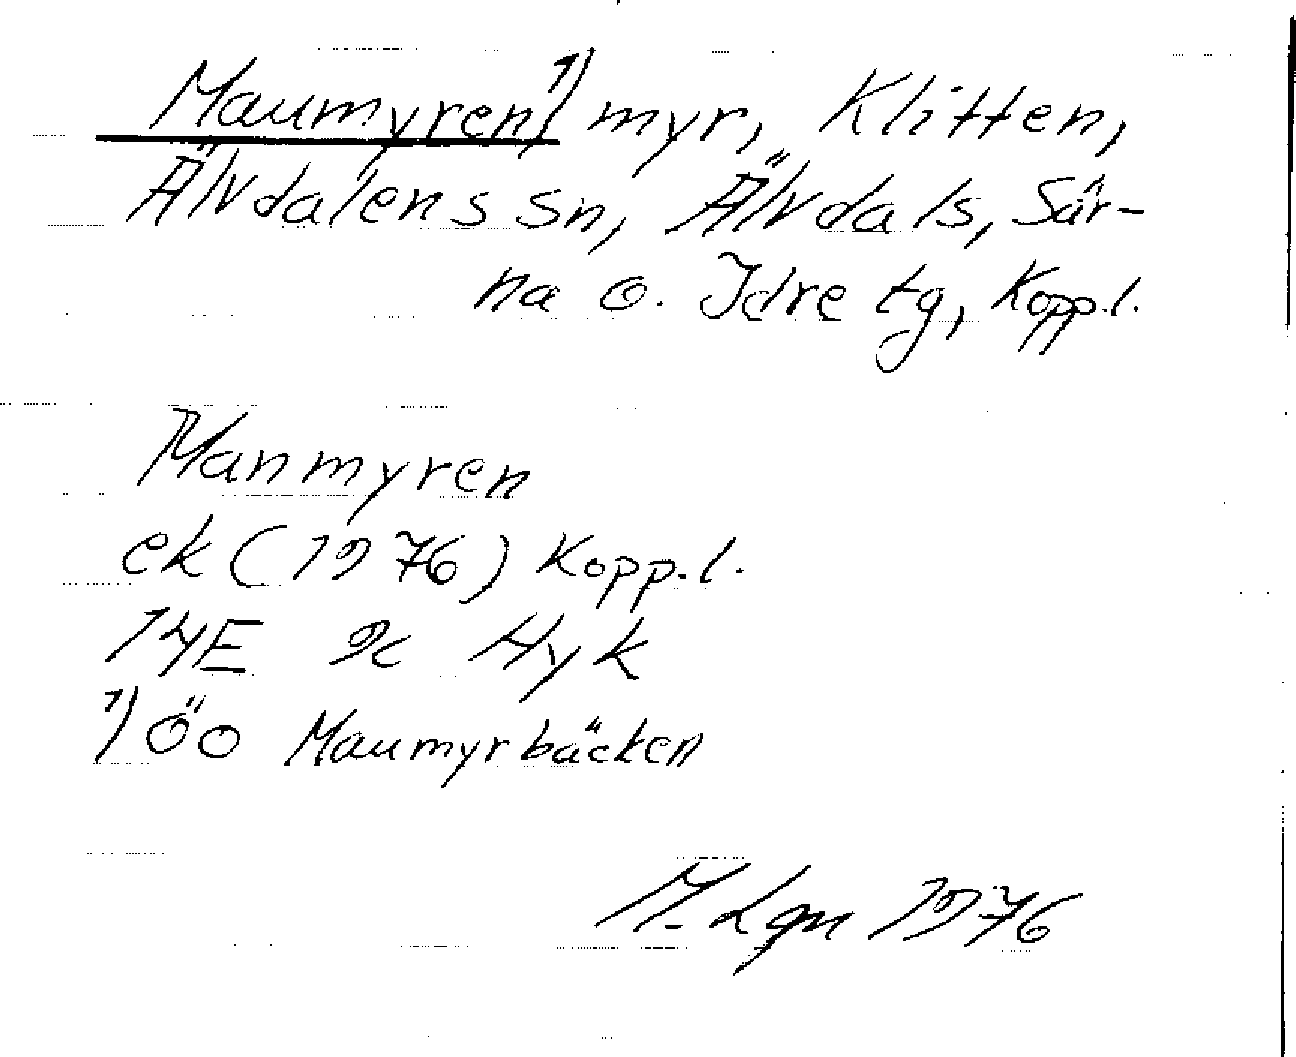 Maumyren,1) myr, Klitten,
Älvdalens sn, Älvdals, Sär-
na o. Idre tg, Kopp.l.
Manmyren
ek (1976) Kopp.l.
14E 9c Hyk
1) öo Maumyrbäcken
M. Lgn 1976